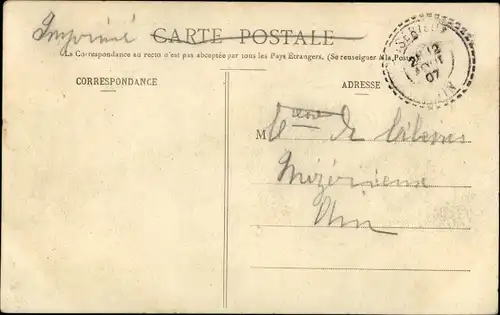 Imprimé
CARTE POSTALE
La Correspondance au recto n'est pas acceptée par tous les Pays Étrangers. (Se renseigner à la Poste)
CORRESPONDANCE
ADRESSE
MIZERIEUX
12
AOUT
07
AIN
M
de
Mizérieux
Ain